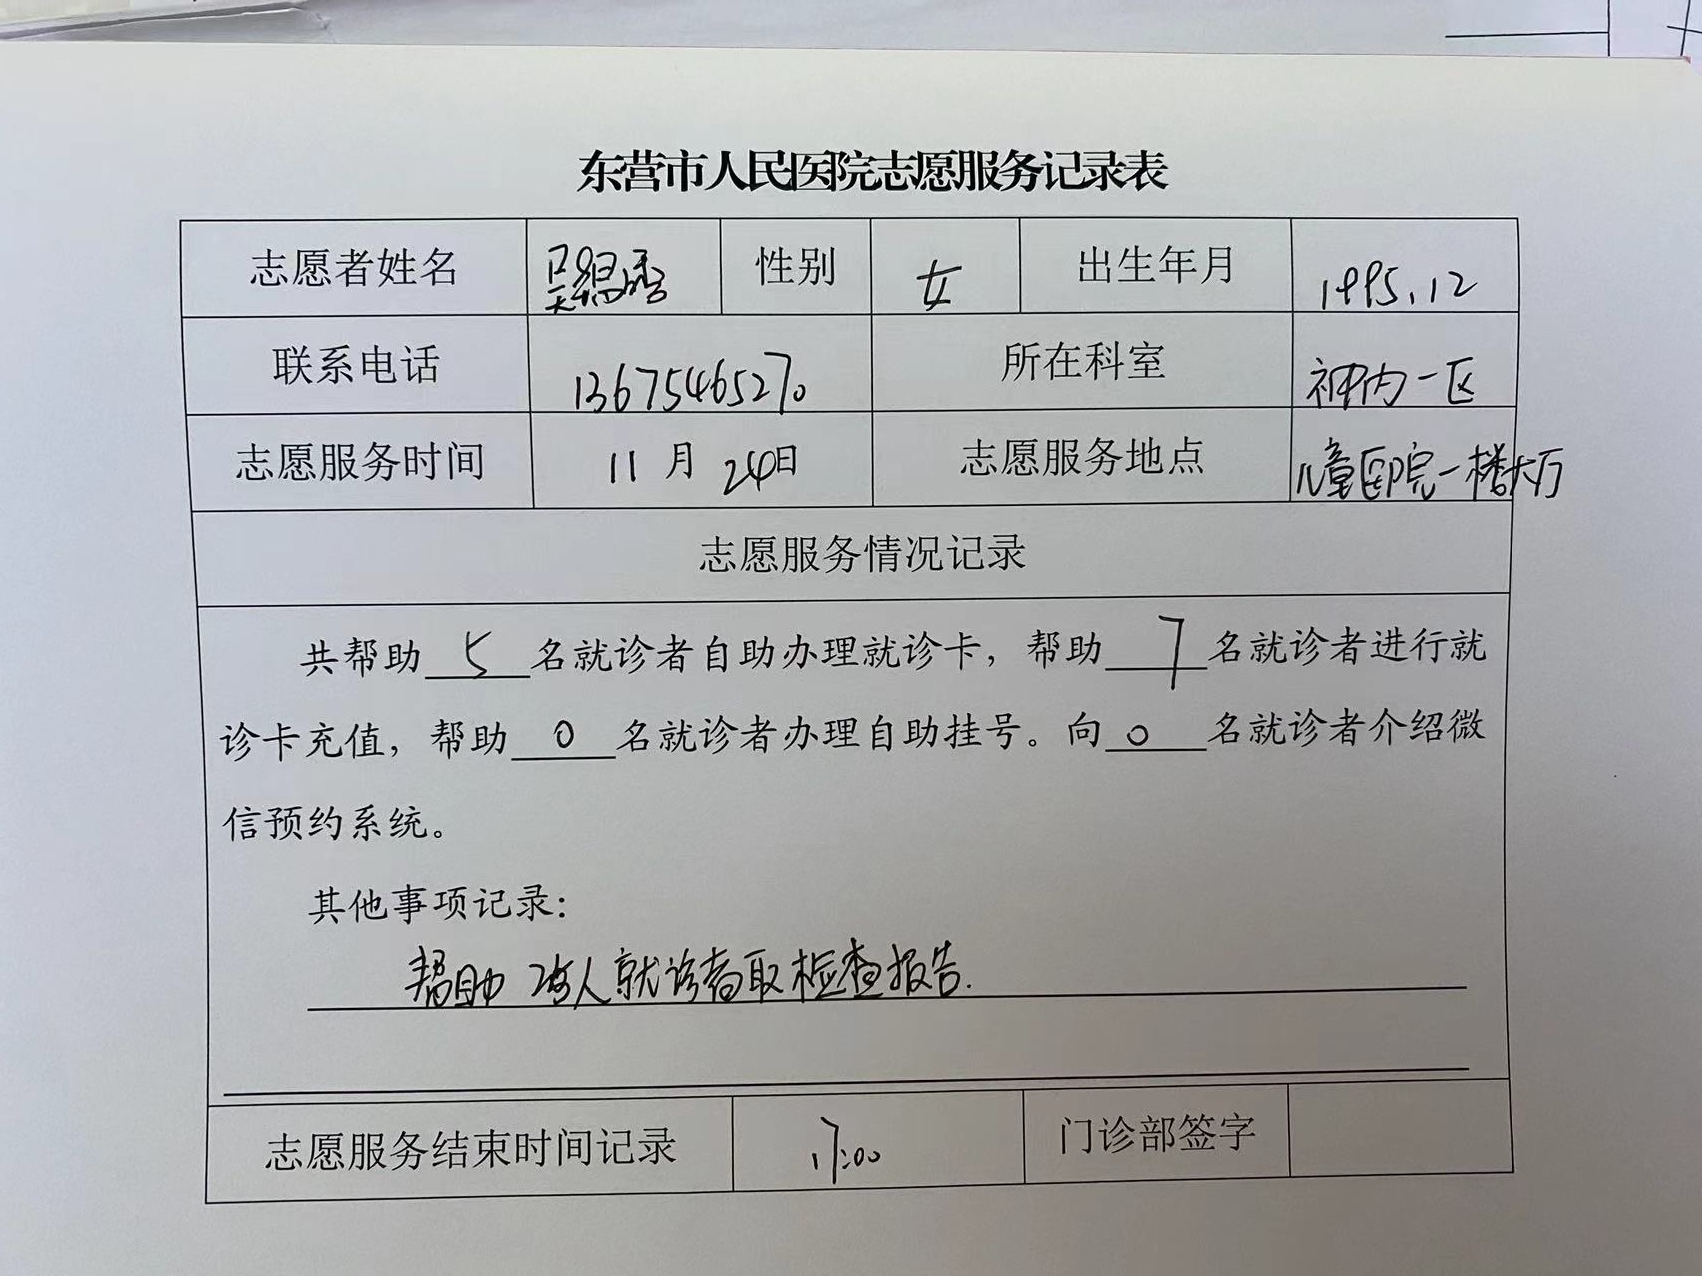 东营市人民医院志愿服务记录表
志愿者姓名 吴 性别 女 出生年月 1995.12
联系电话 13675465270 所在科室 神内一区
志愿服务时间 11月24日 志愿服务地点 儿童医院一楼大厅
志愿服务情况记录
共帮助 5 名就诊者自助办理就诊卡，帮助 7 名就诊者进行就
诊卡充值，帮助 0 名就诊者办理自助挂号。向 0 名就诊者介绍微
信预约系统。
其他事项记录：
帮助 人就诊者取检查报告.
志愿服务结束时间记录 17:00 门诊部签字